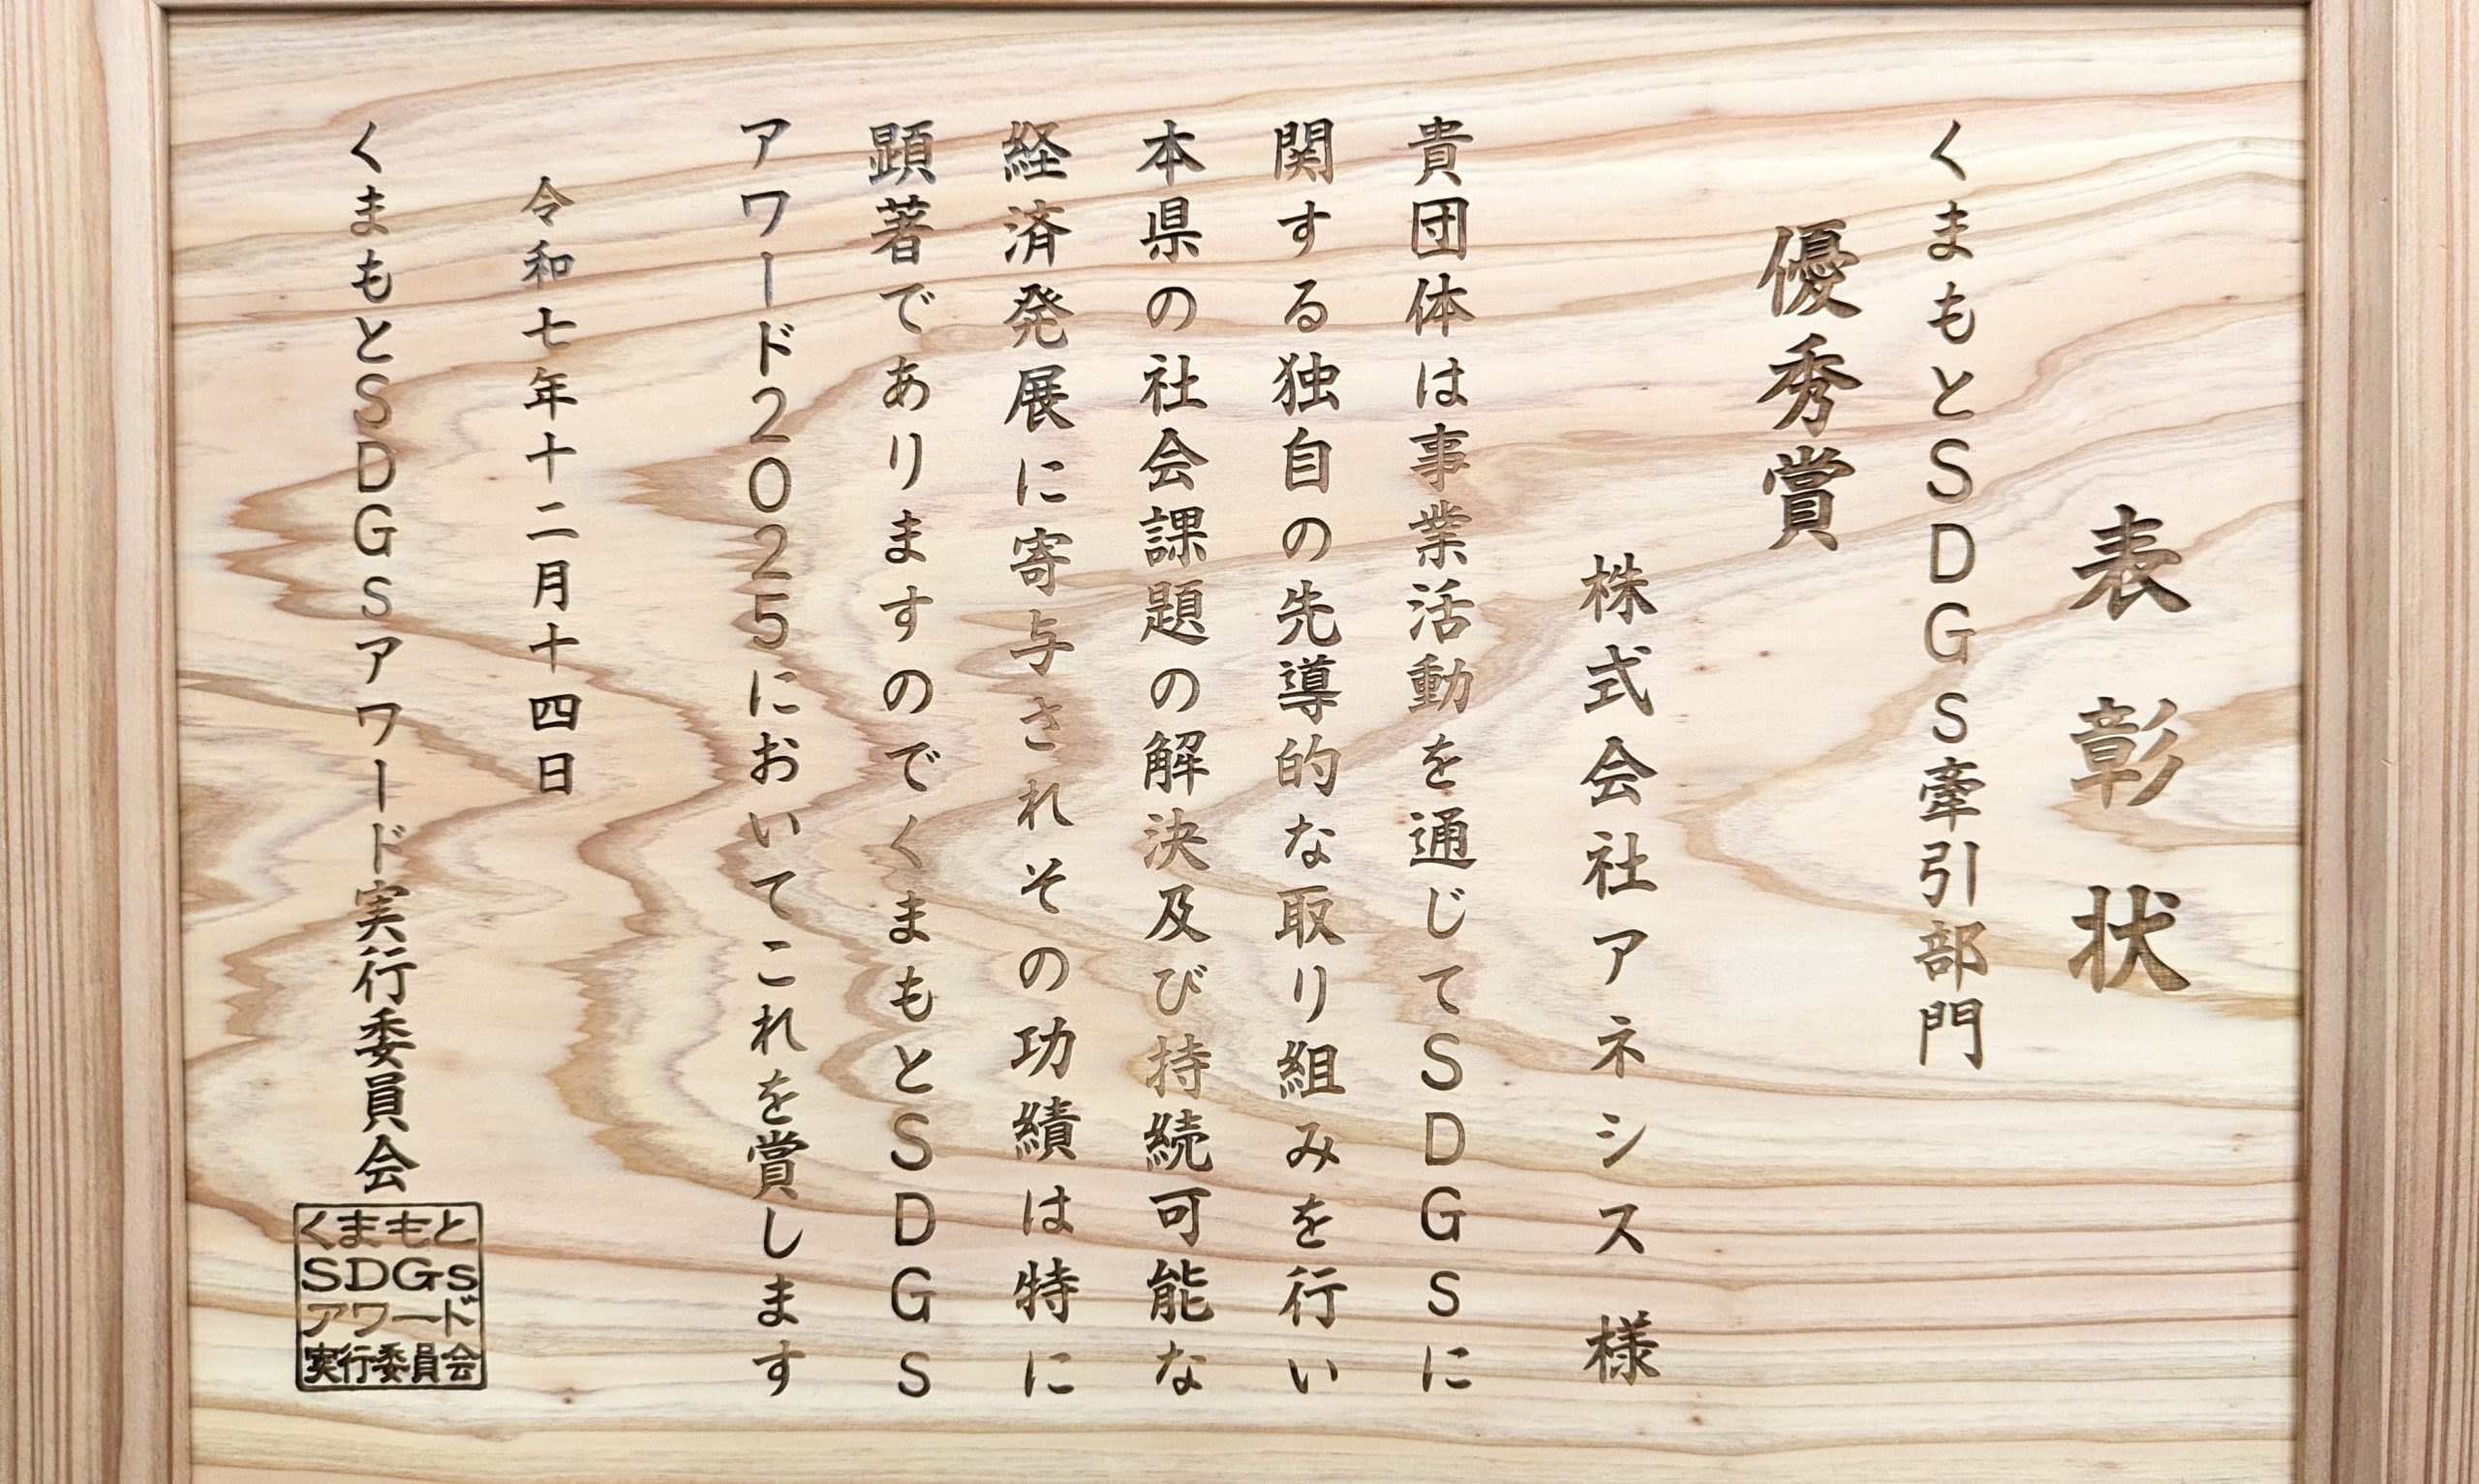 表彰状
くまもとSDGs牽引部門
優秀賞
株式会社アネシス 様
貴団体は事業活動を通じてSDGsに
関する独自の先導的な取り組みを行い
本県の社会課題の解決及び持続可能な
経済発展に寄与されその功績は特に
顕著でありますのでくまもとSDGs
アワード2025においてこれを賞します
令和七年十二月十四日
くまもとSDGsアワード実行委員会
くまもと
SDGs
アワード
実行委員会